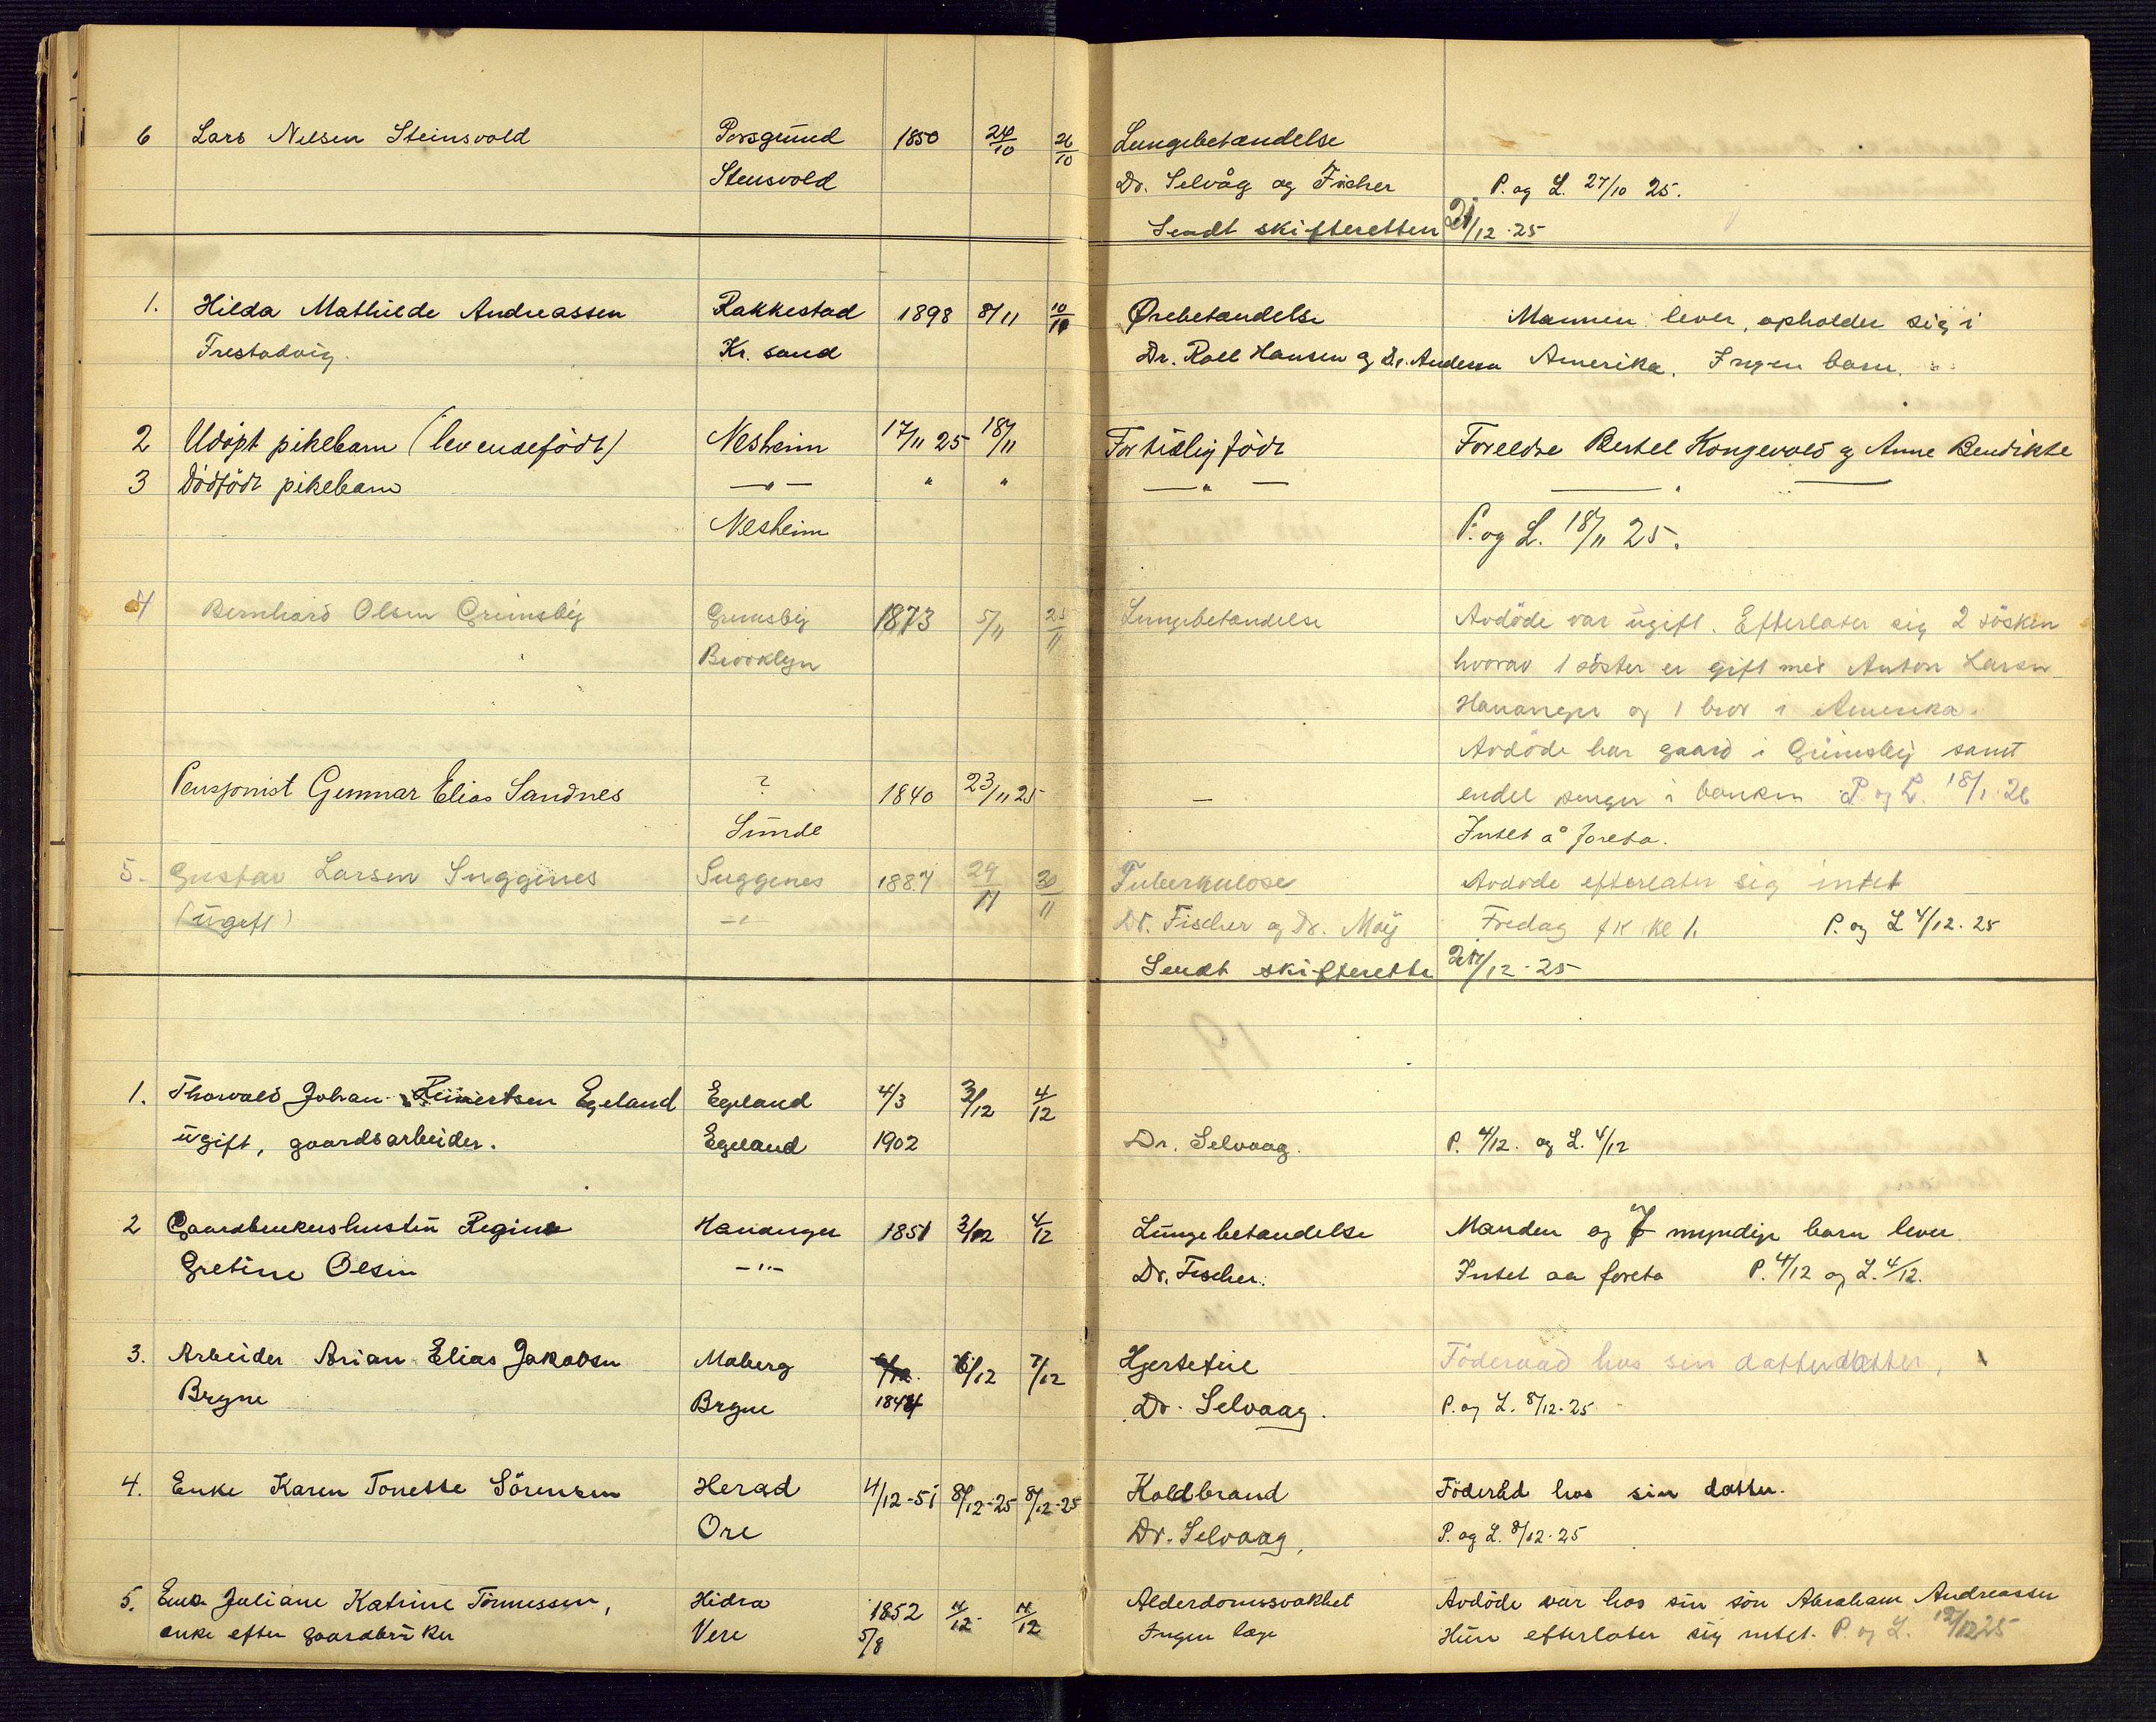 6 Lars Nilsen Steinsvold Porsgrund 1850 24/10 26/10 Lungebetændelse
Stensvold Dr. Selvåg og Fischer P. og L. 27/10 25.
Sendt skifteretten 21/12-25
1. Hilda Mathilde Andreassen Rakkestad 1898 8/11 10/11 Ørebetændelse Mannen lever, opholder sig i
Frestadvig. Kr. sand Dr. Roll Hansen og Dr. Andersen Amerika. Ingen barn.
2 Udöpt pikebarn (levendefödt) Nesheim 17/11 25 18/11 For tidlig födt Foreldre Bertel Kongevold og Anne Bendikte
3 Dödfödt pikebarn —"— " " —"— —"—
Nesheim P. og L. 18/11 25.
4 Bernhard Olsen Grimsby Grimsby 1873 5/11 25/11 Lungebetændelse Avdöde var ugift. Efterlater sig 2 sösken
Brooklyn hvorav 1 söster er gift med Anton Larsen
Hananger og 1 bror i Amerika.
Avdöde har gaard i Grimsby samt
Pensjonist Gunnar Elias Sandnes ? 1840 23/11 25 — endel penger i banken P. og L. 18/1 26
Sunde Intet å foreta.
5. Gustav Larsen Suggenes Suggenes 1887 29/11 30/11 Tuberkulose Avdöde efterlater sig intet
(ugift) —"— Dr. Fischer og Dr. May Fredag fk kl 1. P. og L 4/12. 25
Sendt skifterette 21/12-25
1. Thorvald Johan Reinertsen Egeland Egeland 4/3 3/12 4/12
ugift, gaardsarbeider. Egeland 1902 Dr. Selvaag. P. 4/12. og L. 4/12
2 Gaardbrukerhustru Regine Hananger 1851 3/12 4/12 Lungebetændelse Manden og 7 myndige barn lever
Gretine Olsen —"— Dr. Fischer. Intet aa foreta P. 4/12 og L. 4/12.
3. Arbeider Arian Elias Jakobsen Moberg 6/12 7/12 Hjertefeil Föderaad hos sin datterdatter,
Brgne Brgne 1844 Dr. Selvaag. P. og L. 8/12-25
4. Enke Karen Tonette Sörensen Herad 4/12-51 8/12-25 8/12-25 Koldbrand Föderåd hos sin datter.
Ore Dr. Selvaag. P. og L. 8/12-25
5. Enke Juliane Katrine Tönnessen, Hidra 1852 4/12 Alderdomssvakhet Avdöde var hos sin sön Abraham Andreassen
enke efter gaardbruker Vere 5/8 Ingen læge Hun efterlater sig intet. P. og L. 12/12 25